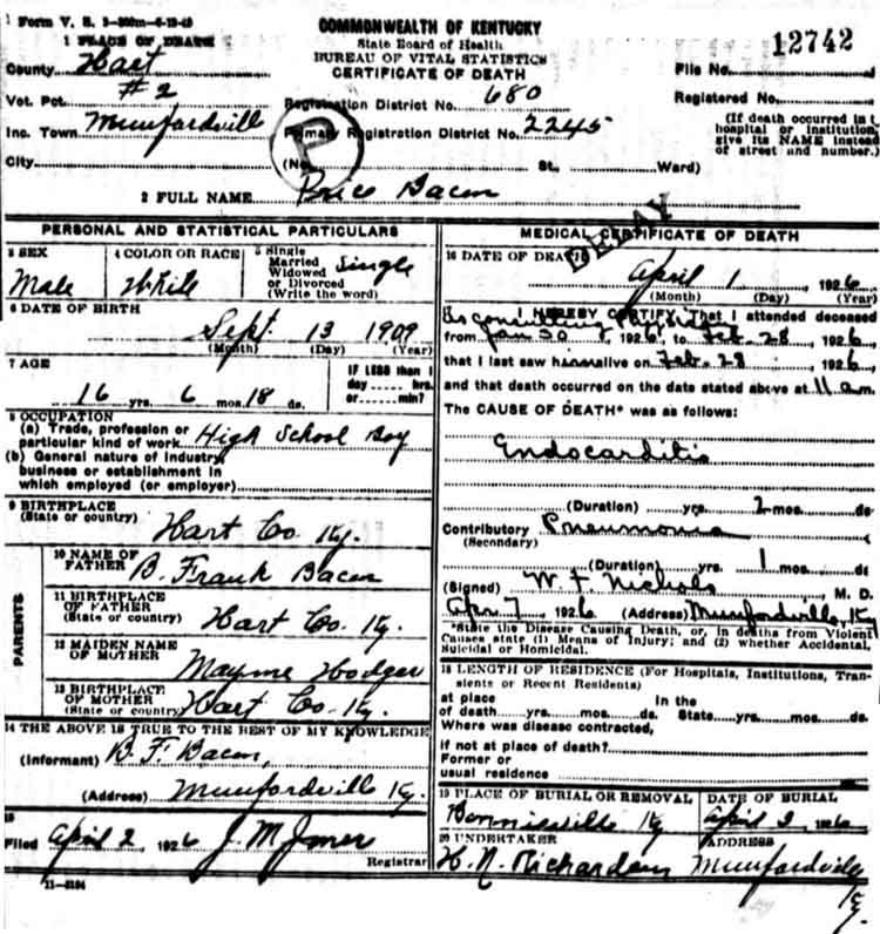 Form V. S.
COMMONWEALTH OF KENTUCKY
State Board of Health
BUREAU OF VITAL STATISTICS
CERTIFICATE OF DEATH
12742
1 PLACE OF DEATH
County Hart
File No.
Vot. Pct. #2
Registration District No. 680
Registered No.
Inc. Town Munfordville
Primary Registration District No. 2245
(If death occurred in hospital or institution, give its NAME instead of street and number.)
City (No. St. Ward)
P
2 FULL NAME Price Bacon
DELAY
PERSONAL AND STATISTICAL PARTICULARS
3 SEX
Male
4 COLOR OR RACE
White
5 Single
Married
Widowed
or Divorced
(Write the word)
Single
6 DATE OF BIRTH
Sept. 13 1909
(Month) (Day) (Year)
7 AGE
16 yrs. 6 mos. 18 ds.
IF LESS than 1
day hrs.
or min?
8 OCCUPATION
(a) Trade, profession or
particular kind of work High School Boy
(b) General nature of industry,
business or establishment in
which employed (or employer)
9 BIRTHPLACE
(State or country)
Hart Co. Ky.
PARENTS
10 NAME OF
FATHER B. Frank Bacon
11 BIRTHPLACE
OF FATHER
(State or country) Hart Co. Ky.
12 MAIDEN NAME
OF MOTHER
Mayme Hodges
13 BIRTHPLACE
OF MOTHER
(State or country) Hart Co. Ky.
14 THE ABOVE IS TRUE TO THE BEST OF MY KNOWLEDGE
(Informant) B. F. Bacon,
(Address) Munfordville Ky.
15
Filed April 2, 1926 J. M. Jones
Registrar
11-3184
MEDICAL CERTIFICATE OF DEATH
16 DATE OF DEATH
April 1, 1926
(Month) (Day) (Year)
I HEREBY CERTIFY, That I attended deceased
As consulting Physician
from Jan 30, 1926, to Feb. 28, 1926,
that I last saw him alive on Feb. 28, 1926,
and that death occurred on the date stated above at 11 a.m.
The CAUSE OF DEATH* was as follows:
Endocarditis
(Duration) yrs. 2 mos. ds.
Contributory Pneumonia
(Secondary)
(Duration) yrs. 1 mos. ds
(Signed) W. F. Nichols, M. D.
Apr 7, 1926 (Address) Munfordville, Ky
*State the Disease Causing Death, or, in deaths from Violent
Causes state (1) Means of Injury; and (2) whether Accidental,
Suicidal or Homicidal.
18 LENGTH OF RESIDENCE (For Hospitals, Institutions, Tran-
sients or Recent Residents)
at place In the
of death yrs. mos. ds. State yrs. mos. ds.
Where was disease contracted,
if not at place of death?
Former or
usual residence
19 PLACE OF BURIAL OR REMOVAL
Bonnieville Ky
DATE OF BURIAL
April 2, 1926
20 UNDERTAKER
H. N. Richardson
ADDRESS
Munfordville
Ky.